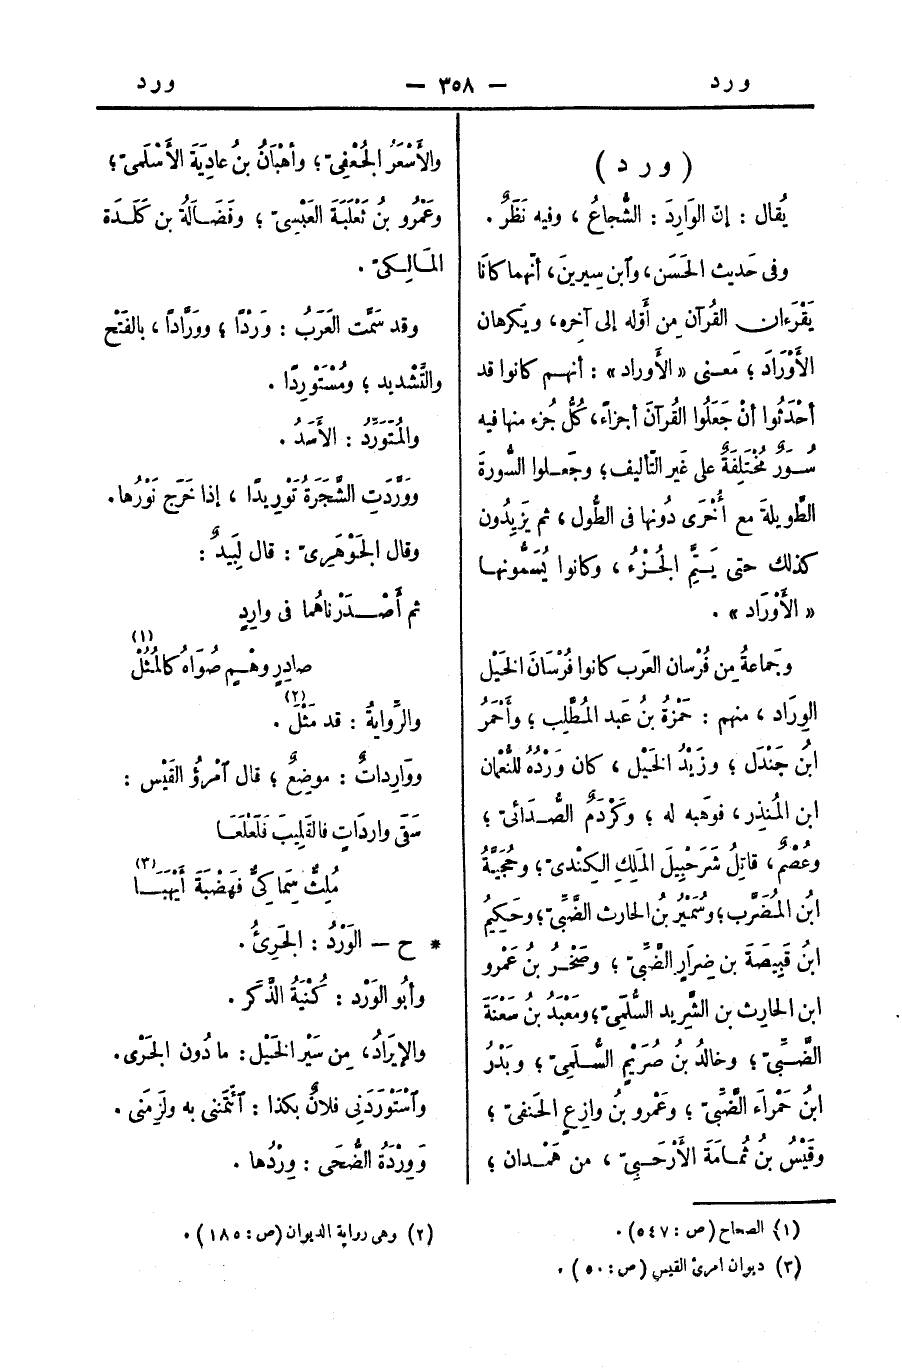 ورد — ٣٥٨ — ورد
( ورد )
يُقال : إنّ الوَارِدَ : الشُّجاعُ ، وفيه نَظَرٌ .
وفى حَديث الحَسَن، وٱبن سِيرينَ، أنّهما كانَا
يَقْرَءان القُرآن مِن أوّله إلى آخِره، ويَكرهان
الأَوْرَادَ ؛ مَعنى «الأَوراد» : أنهم كانوا قد
أحْدَثُوا أنْ جَعَلُوا القُرآنَ أجزاءً، كُلُّ جُزء منها فيه
سُوَرٌ مُخْتَلِفَةٌ على غَير التّأليف؛ وجَعلوا السُّورةَ
الطَّويلةَ مع أُخْرَى دُونها فى الطُول ، ثم يَزِيدُون
كذلك حتى يَتِمَّ الجُزْءُ ، وكانوا يُسَمُّونها
«الأَوْرَاد» .
وجَماعةُ مِن فُرْسان العَرب كانوا فُرْسَانَ الخَيل
الوِرَاد ، منهم : حَمْزةُ بنُ عَبد المُطَّلِب ؛ وأَحْمَرُ
ابنُ جَنْدَل ؛ وزَيْدُ الخَيل ، كان وَرْدُهُ للنُّعْمان
ابن المُنذِر، فوَهبه له ؛ وكَرْدَمٌ الصُّدَائىّ ؛
وعُصْمٌ، قاتِلُ شَرَحْبِيلَ المَلِكِ الكِنْدىّ؛ وحُجَيَّةُ
ابنُ المُضَرَّب؛ وسُمَيْرُ بنُ الحارث الضَّبِّىّ؛ وحَكِيمُ
ابنُ قَبِيصَةَ بن ضِرارٍ الضَّبِّىّ ؛ وصَخْرُ بنُ عَمْرو
ابن الحارِث بن الشَّرِيد السُّلَمِىّ؛ ومَعْبَدُ بنُ سَعْنَةَ
الضَّبِّىّ ؛ وخالدُ بنُ صُرَيْمٍ السُّلَمِىّ ؛ وبَدْرُ
ابنُ حَمْراءَ الضَّبِّىّ ؛ وعَمْرو بنُ وازِعٍ الحَنفىّ ؛
وقَيْسُ بنُ ثُمامَةَ الأَرْحَبِىّ ، من هَمْدان ؛
والأَسْعَرُ الجُعْفِىّ ؛ وأهْبَانُ بنُ عادِيَةَ الأَسْلَمىّ ؛
وعَمْرُو بنُ ثَعْلَبَةَ العَبْسِىّ ؛ وفَضَالَةُ بن كَلَدَة
المَالِكىّ .
وقد سَمَّت العَرَبُ : وَرْدًا ؛ ووَرَّاداً ، بالفَتْح
والتَّشْديد ؛ ومُسْتَوْرِدًا .
والمُتَوَرِّدُ : الأَسَدُ .
ووَرَّدَتِ الشَّجَرَةُ تَوْرِيدًا ، إذا خَرَج نَوْرُها.
وقال الجَوْهَرِىّ : قال لَبِيدٌ :
ثم أَصْدَرْناهُما فى وارِدٍ
صادِرٍ وهْمٍ صُوَاهُ كالمُثُلْ (١)
والرِّوايةُ : قد مَثَلْ (٢) .
ووَارِداتٌ : موضِعٌ ؛ قال ٱمْرؤُ القَيْس :
سَقَى وارِدَاتٍ فالقَلِيبَ فَلَعْلَعَا
مُلِثٌّ سِمَاكِىٌّ فَهَضْبَةَ أَيْهَبَا (٣)
* ح – الوَرْدُ : الجَرِىُٔ .
وأبُو الوَرْد : كُنْيَةُ الذَّكَر .
والإيرَادُ، مِن سَيْر الخَيْل : ما دُون الجَرْى.
وٱسْتَوْرَدَنِى فلانٌ بكذا : ٱئْتَمَننى به ولَزِمَنى .
وَوِرْدَةُ الضُّحَى : وِرْدُها .
(١) الصحاح (ص : ٥٤٧) .
(٢) وهى رواية الديوان (ص : ١٨٥) .
(٣) ديوان امرئ القيس (ص : ٥٠) .